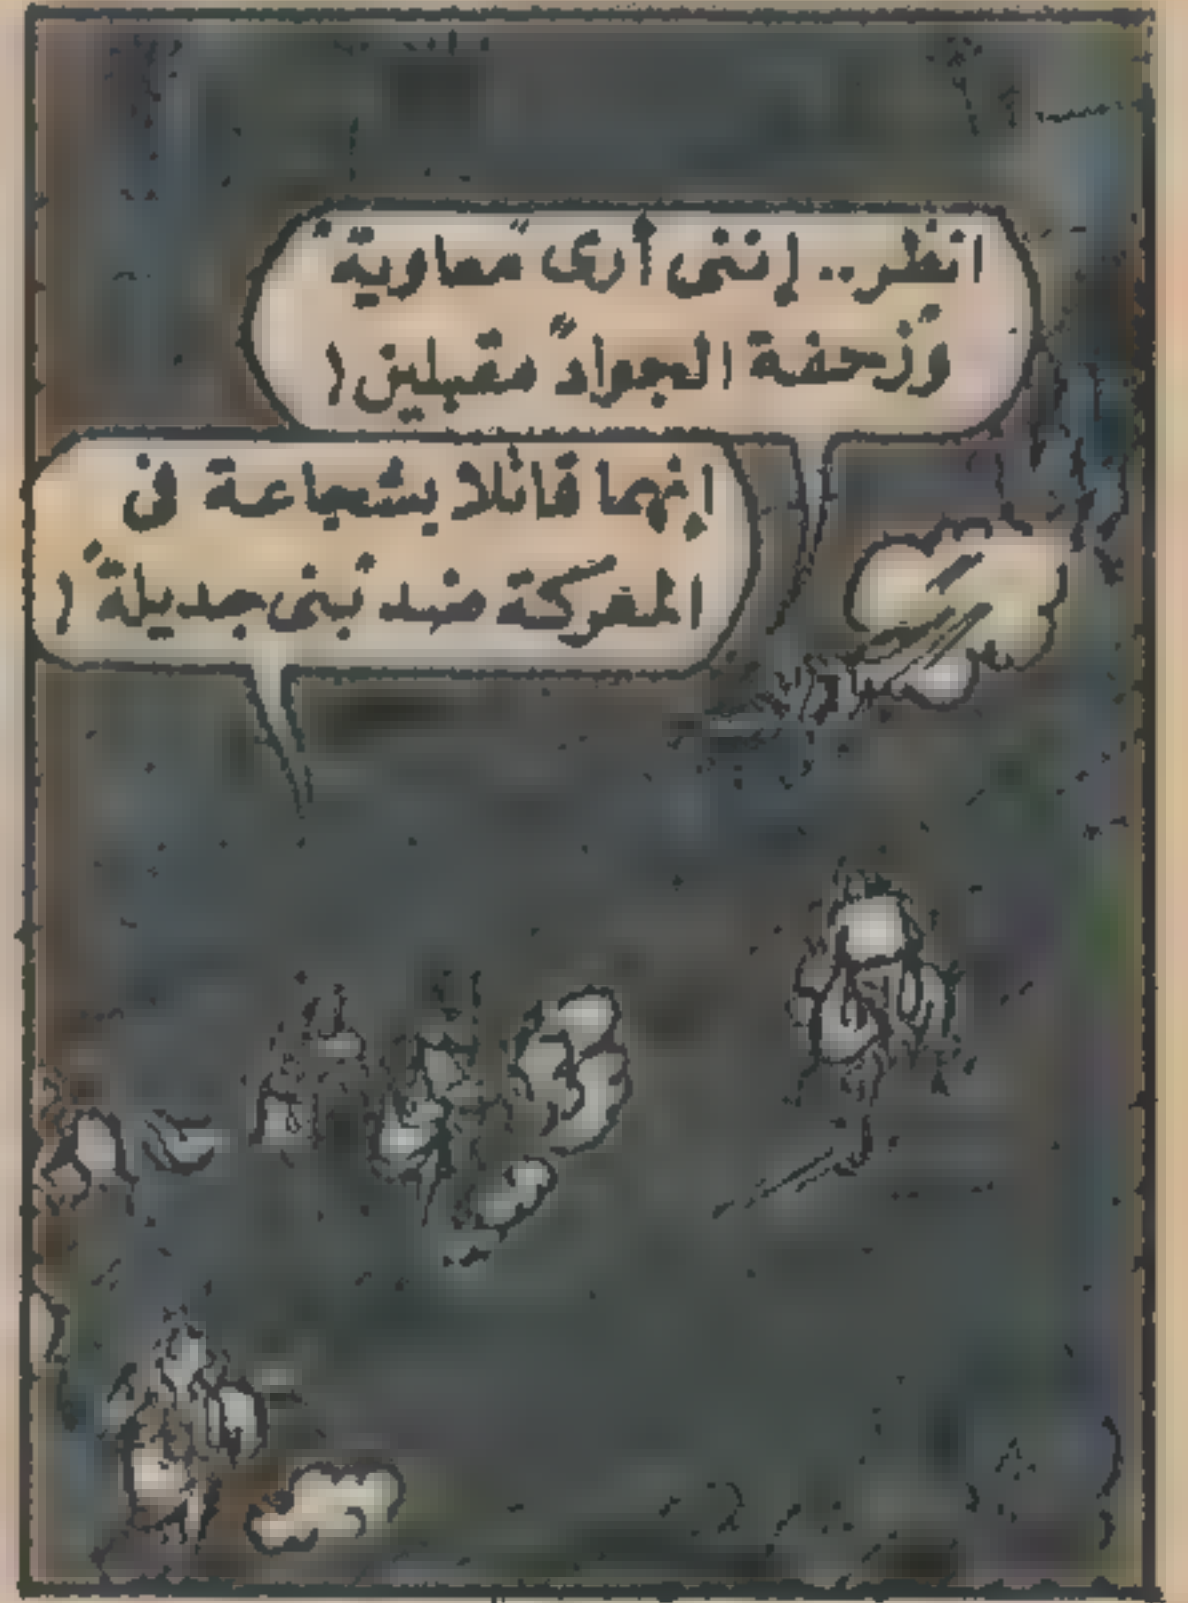 انظر.. إننى أرى معاوية
وزحفة الجواد مقبلين!
إنهما قاتلا بشجاعة فى
المعركة ضد بنى جديلة!